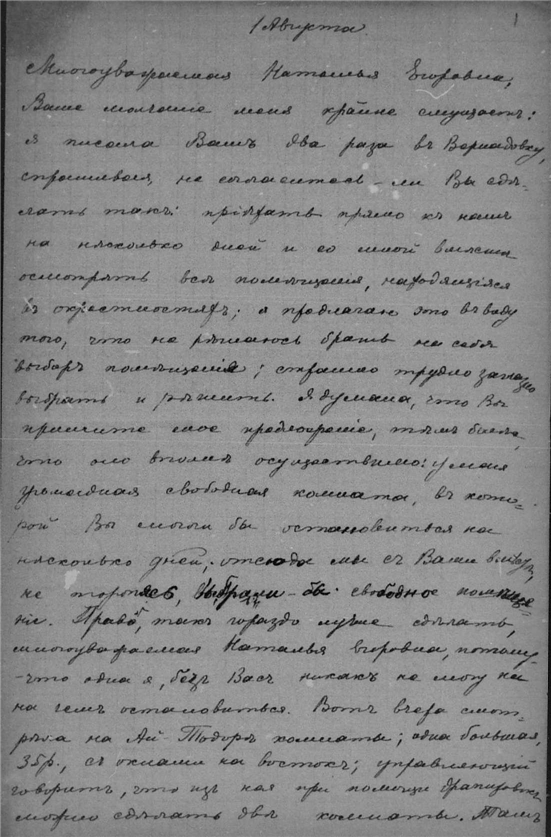 1
1 Августа
Многоуважаемая Наталья Егоровна,
Ваше молчанiе меня крайне смущаетъ:
я писала Вамъ два раза въ Вернадовку,
спрашивая, не согласитесь-ли Вы сдѣ-
лать такъ: прiѣхать прямо къ намъ
на нѣсколько дней и со мной вмѣстѣ
осмотрѣть всѣ помѣщенiя, находящiяся
въ окрестностяхъ; я предлагаю это въ виду
того, что не рѣшаюсь брать на себя
выборъ помѣщенiя; страшно трудно заглазно
выбрать и рѣшить. Я думала, что Вы
примите мое предложенiе, тѣмъ болѣе,
что оно вполнѣ осуществимо: у меня
громадная свободная комната, въ кото-
рой Вы могли бы остановиться на
нѣсколько дней; отсюда мы съ Вами вмѣстѣ,
не торопясь, выбрали-бы свободное помѣще-
нiе. Право, такъ гораздо лучше сдѣлать,
многоуважаемая Наталья Егоровна, потому-
-что одна я, безъ Васъ никакъ не могу ни
на чемъ остановиться. Вотъ вчера смот-
рѣла на Ай-Тодорѣ комнаты; одна большая,
35р., съ окнами на востокъ; управляющiй
говоритъ, что изъ нея при помощи драпировокъ
можно сдѣлать двѣ комнаты. Тамъ